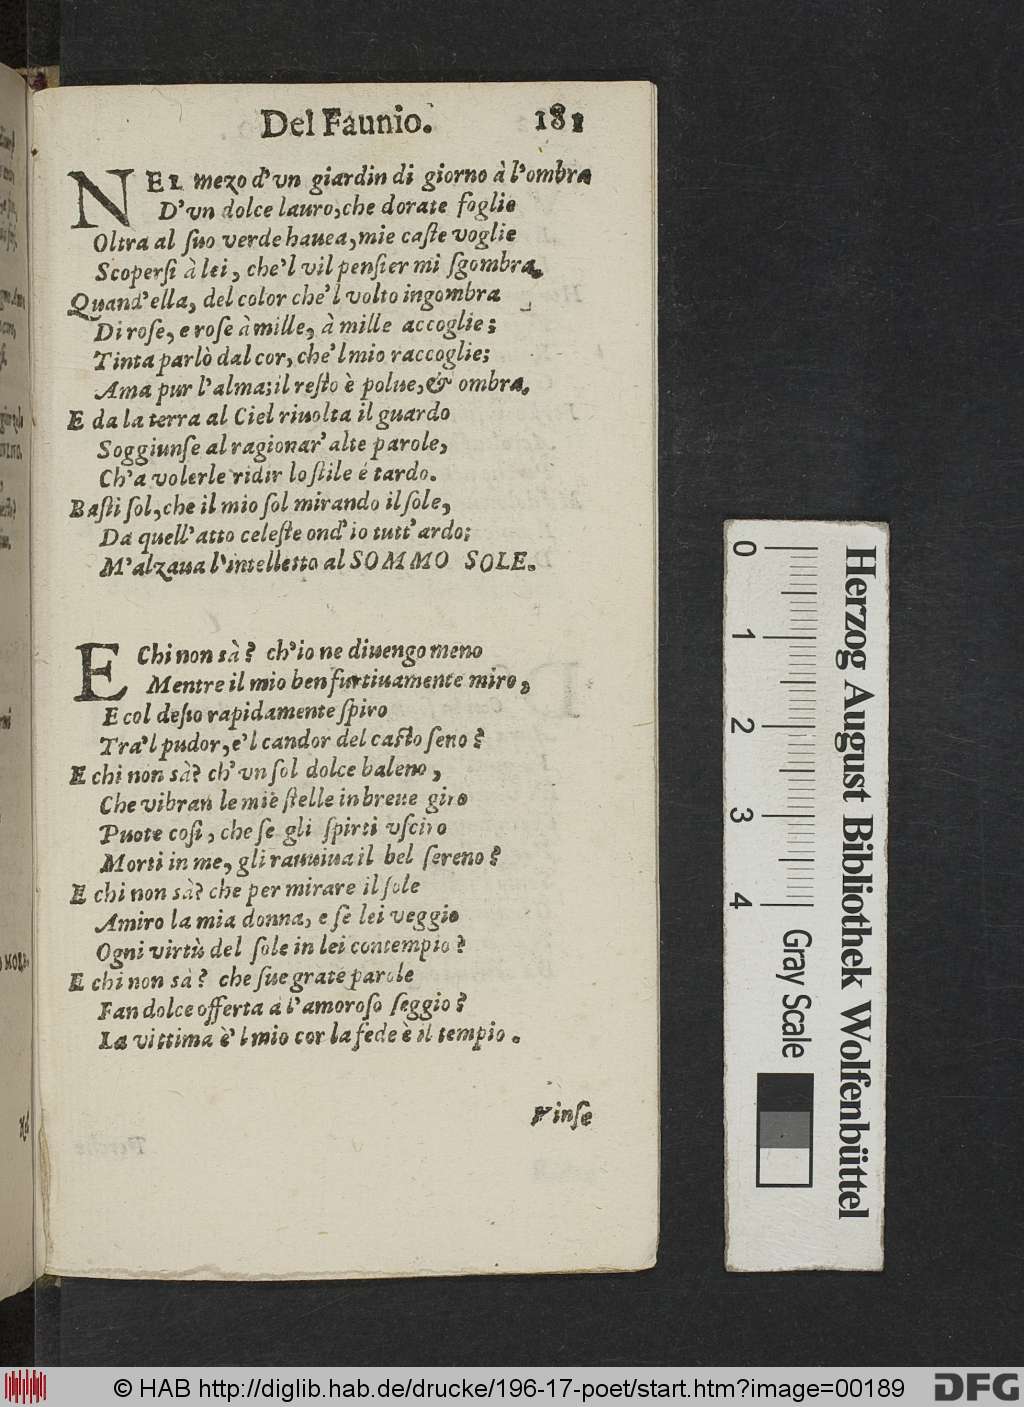 Del Faunio. 181
NEL mezo d'vn giardin di giorno à l'ombra
D'vn dolce lauro, che dorate foglie
Oltra al ſuo verde hauea, mie caſte voglie
Scoperſi à lei, che'l vil penſier mi ſgombra.
Quand'ella, del color che'l volto ingombra
Di roſe, e roſe à mille, à mille accoglie;
Tinta parlò dal cor, che'l mio raccoglie;
Ama pur l'alma; il reſto è polue, & ombra.
E da la terra al Ciel riuolta il guardo
Soggiunſe al ragionar' alte parole,
Ch'a volerle ridir lo ſtile é tardo.
Baſti ſol, che il mio ſol mirando il ſole,
Da quell'atto celeſte ond'io tutt'ardo;
M'alzaua l'intelletto al SOMMO SOLE.
E Chi non sà? ch'io ne diuengo meno
Mentre il mio ben furtiuamente miro,
E col deſio rapidamente ſpiro
Tra'l pudor, e'l candor del caſto ſeno?
E chi non sà? ch'vn ſol dolce baleno,
Che vibran le mie ſtelle in breue giro
Puote coſi, che ſe gli ſpirti vſciro
Morti in me, gli rauuiua il bel ſereno?
E chi non sà? che per mirare il ſole
Amiro la mia donna, e ſe lei veggio
Ogni virtù del ſole in lei contempio?
E chi non sà? che ſue grate parole
Fan dolce offerta a l'amoroſo ſeggio?
La vittima è'l mio cor la fede è il tempio.
Vinſe
0 1 2 3 4
Gray Scale
Herzog August Bibliothek Wolfenbüttel
© HAB http://diglib.hab.de/drucke/196-17-poet/start.htm?image=00189
DFG